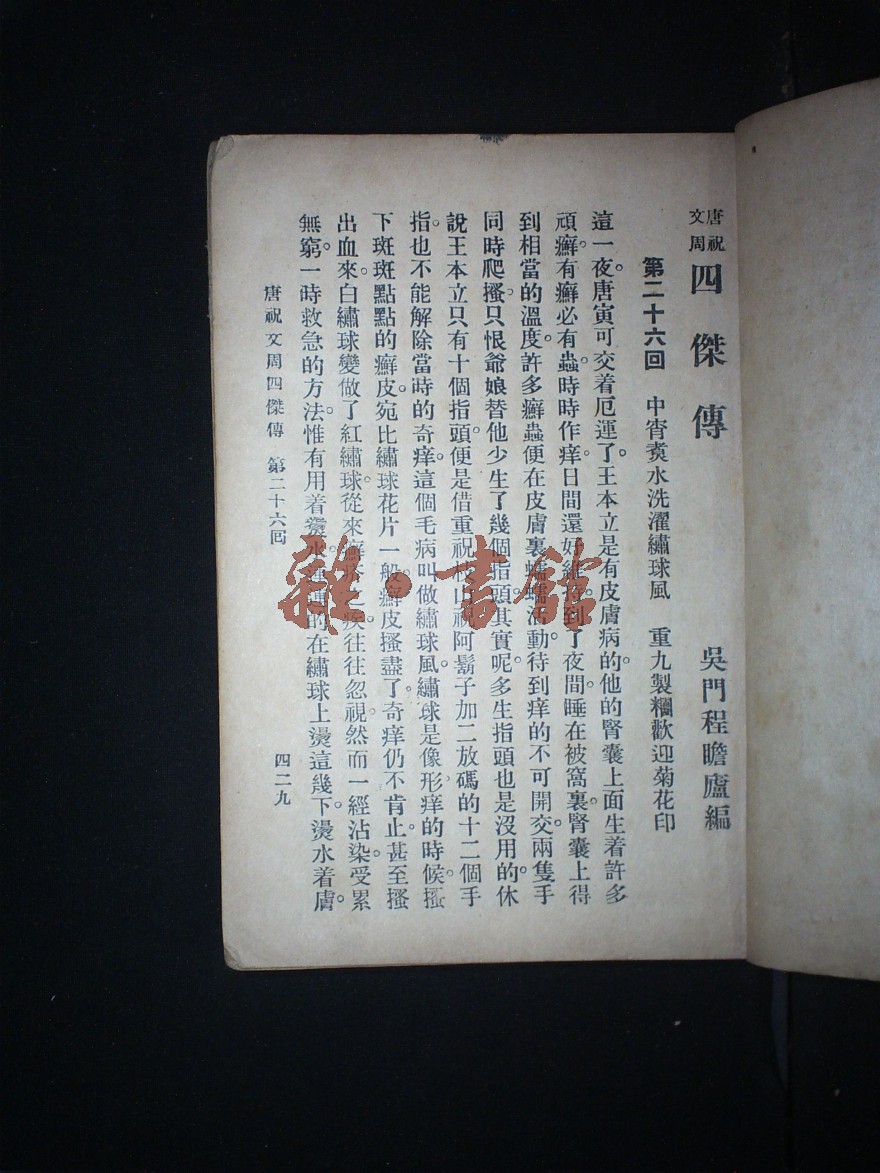 唐祝文周四傑傳
吳門程瞻廬編
第二十六回 中宵煑水洗濯繡球風 重九製糰歡迎菊花印
這一夜。唐寅可交着厄運了。王本立是有皮膚病的。他的腎囊上面生着許多
頑癬。有癬必有蟲。時時作痒。日間還好維持。到了夜間。睡在被窩裏。腎囊上得
到相當的溫度。許多癬蟲便在皮膚裏蠕蠕活動。待到痒的不可開交。兩隻手
同時爬搔。只恨爺娘替他少生了幾個指頭。其實呢。多生指頭也是沒用的。休
說王本立只有十個指頭。便是借重祝枝山祝阿鬍子加二放碼的十二個手
指。也不能解除當時的奇痒。這個毛病叫做繡球風。繡球是像形。痒的時候。搔
下斑斑點點的癬皮。宛比繡球花片一般。癬皮搔盡了。奇痒仍不肯止。甚至搔
出血來。白繡球變做了紅繡球。從來癬疥之疾。往往忽視。然而一經沾染。受累
無窮。一時救急的方法。惟有用着盪水。的在繡球上燙這幾下。燙水着膚。
唐祝文周四傑傳 第二十六回
四二九
雜·書館